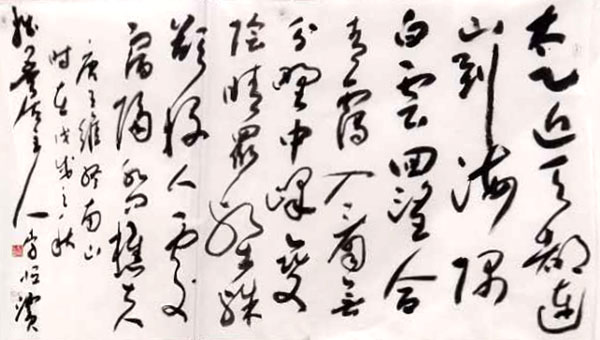 太乙近天都連
山到海隅
白雲回望合
青靄入看無
分野中峰變
陰晴眾壑殊
欲投人處
宿隔水問樵夫
唐王維終南山
时在戊戌之秋
主人